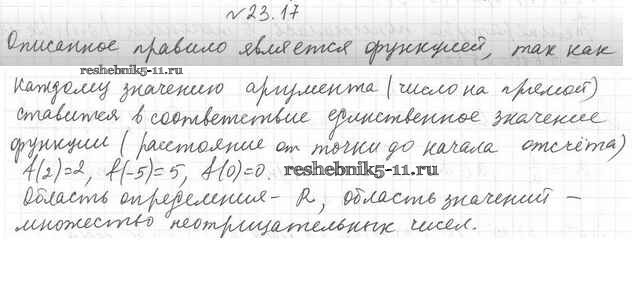 №23.17
Описанное правило является функцией, так как
reshebnik5-11.ru
каждому значению аргумента (число на прямой)
ставится в соответствие единственное значение
функции (расстояние от точки до начала отсчёта)
f(2)=2, f(-5)=5, f(0)=0. reshebnik5-11.ru
Область определения - R, область значений –
множество неотрицательных чисел.